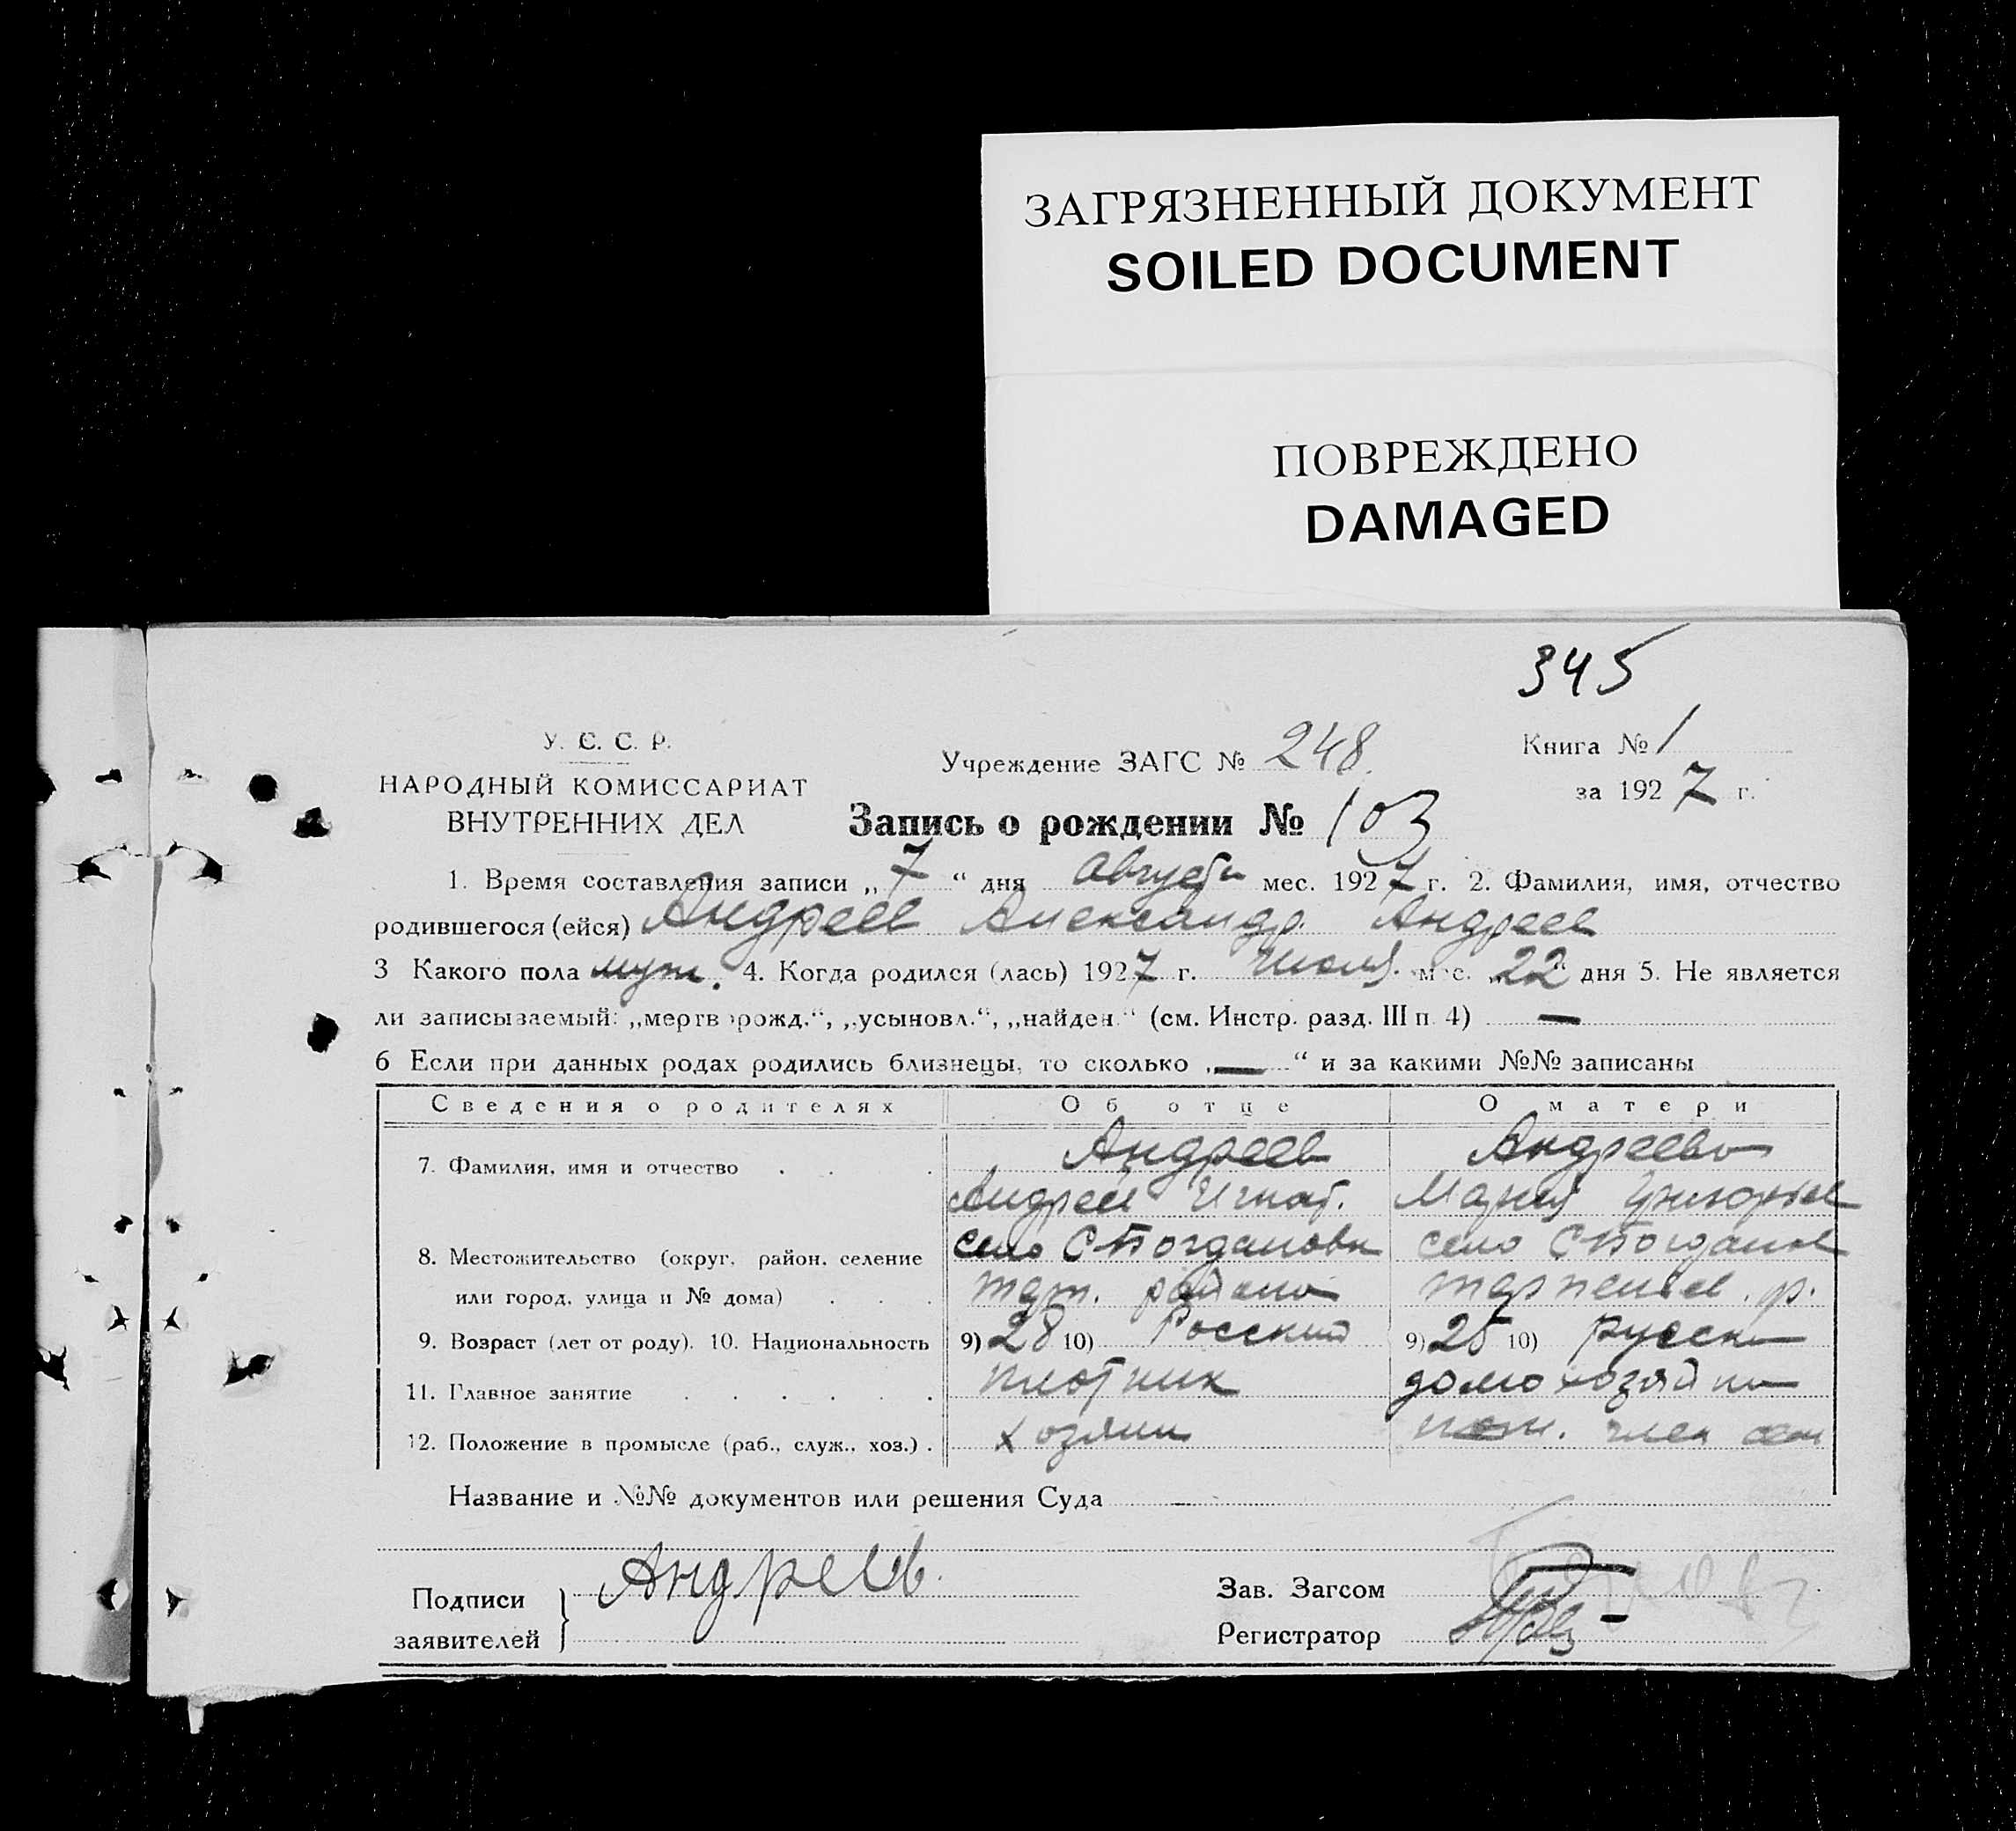 ЗАГРЯЗНЕННЫЙ ДОКУМЕНТ
SOILED DOCUMENT
ПОВРЕЖДЕНО
DAMAGED
345
У. С. С. Р.
НАРОДНЫЙ КОМИССАРИАТ
ВНУТРЕННИХ ДЕЛ
Учреждение ЗАГС № 248
Книга № 1
за 1927 г.
Запись о рождении № 103
1. Время составления записи „7“ дня Августа мес. 1927 г. 2. Фамилия, имя, отчество
родившегося (ейся) Андреев Александр Андреев
3 Какого пола муж. 4. Когда родился (лась) 1927 г. Июля мес. „22“ дня 5. Не является
ли записываемый: „мертворожд.“, „усыновл.“, „найден.“ (см. Инстр. разд. III п. 4) —
6 Если при данных родах родились близнецы, то сколько „—“ и за какими №№ записаны
Сведения о родителях Об отце О матери
7. Фамилия, имя и отчество . . . Андреев Андреева
Андрей Игнат. Мария
8. Местожительство (округ, район, селение село С Богдановка село С Богданов
или город, улица и № дома) . . . района р.
9. Возраст (лет от роду). 10. Национальность 9) 28 10) Росский 9) 25 10) Русска
11. Главное занятие . . . . . . плотник домохозяйка
12. Положение в промысле (раб., служ., хоз.) . хозяин член сем
Название и №№ документов или решения Суда —
Подписи
заявителей
Андреев
Зав. Загсом
Регистратор